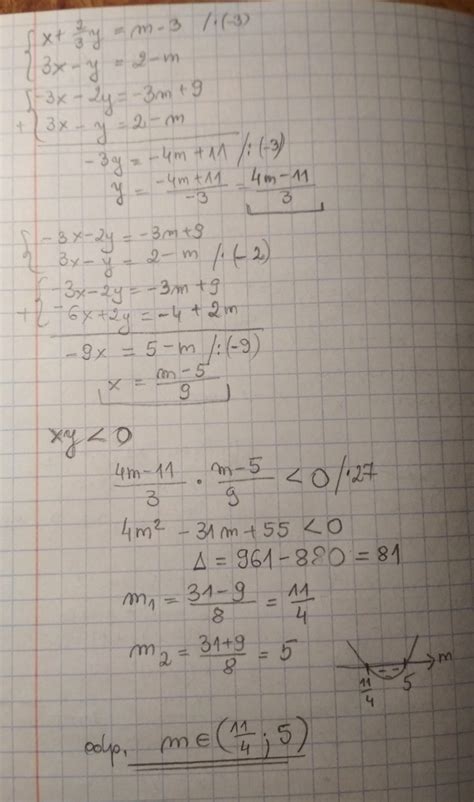 { x + 2/3 y = m - 3 /·(-3)
3x - y = 2 - m
{ -3x - 2y = -3m + 9
+ 3x - y = 2 - m
-3y = -4m + 11 /:(-3)
y = -4m+11/-3 = 4m-11/3
{ -3x - 2y = -3m + 9
3x - y = 2 - m /·(-2)
{ -3x - 2y = -3m + 9
+ -6x + 2y = -4 + 2m
-9x = 5 - m /:(-9)
x = m-5/9
xy < 0
4m-11/3 · m-5/9 < 0 /·27
4m² - 31m + 55 < 0
Δ = 961 - 880 = 81
m₁ = 31-9/8 = 11/4
m₂ = 31+9/8 = 5
m
11/4 5
odp. m ∈ (11/4 ; 5)